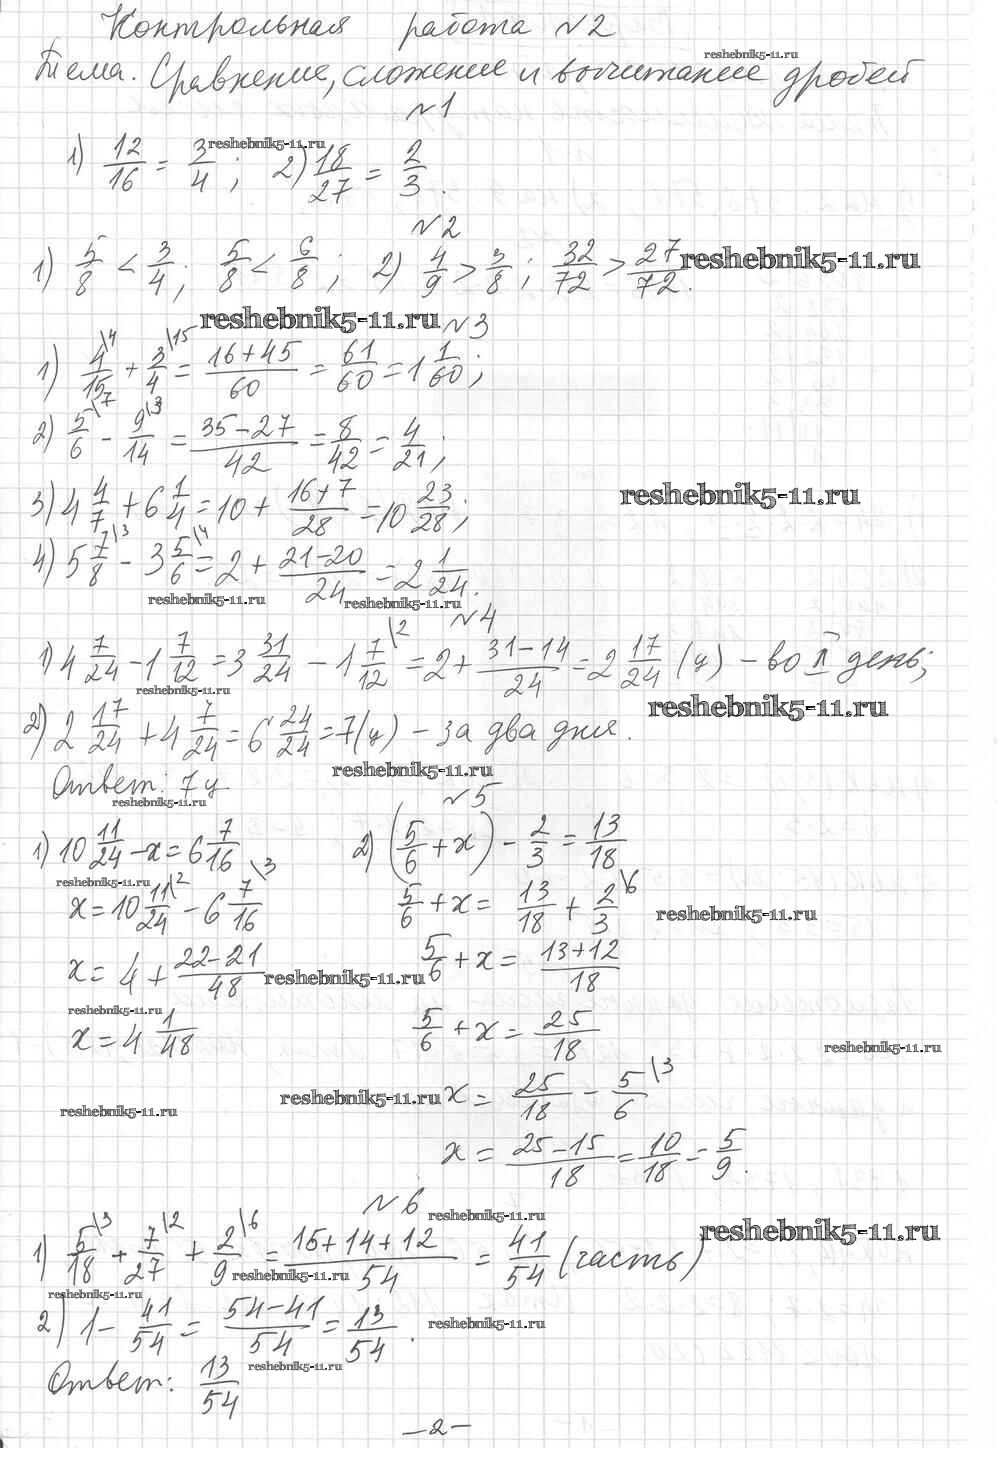 Контрольная работа №2
reshebnik5-11.ru
Тема. Сравнение, сложение и вычитание дробей
№1
reshebnik5-11.ru
1) 12/16 = 3/4 ; 2) 18/27 = 2/3 .
№2
1) 5/8 < 3/4 ; 5/8 < 6/8 ; 2) 4/9 > 3/8 ; 32/72 > 27/72 . reshebnik5-11.ru
reshebnik5-11.ru №3
1) 4/15 \4 + 3/4 \15 = (16+45)/60 = 61/60 = 1 1/60 ;
2) 5/6 \7 - 9/14 \3 = (35-27)/42 = 8/42 = 4/21 ;
3) 4 4/7 + 6 1/4 = 10 + (16+7)/28 = 10 23/28 ; reshebnik5-11.ru
4) 5 7/8 \3 - 3 5/6 \4 = 2 + (21-20)/24 = 2 1/24 .
reshebnik5-11.ru reshebnik5-11.ru
№4
1) 4 7/24 - 1 7/12 = 3 31/24 - 1 7/12 \2 = 2 + (31-14)/24 = 2 17/24 (ц) - во II день;
reshebnik5-11.ru reshebnik5-11.ru
2) 2 17/24 + 4 7/24 = 6 24/24 = 7 (ц) - за два дня.
reshebnik5-11.ru
Ответ: 7 ц
reshebnik5-11.ru
№5
1) 10 11/24 - x = 6 7/16 2) (5/6 + x) - 2/3 = 13/18
reshebnik5-11.ru
x = 10 11/24 \2 - 6 7/16 \3 5/6 + x = 13/18 + 2/3 \6 reshebnik5-11.ru
x = 4 + (22-21)/48 reshebnik5-11.ru 5/6 + x = (13+12)/18
reshebnik5-11.ru
x = 4 1/48 5/6 + x = 25/18 reshebnik5-11.ru
reshebnik5-11.ru reshebnik5-11.ru x = 25/18 - 5/6 \3
x = (25-15)/18 = 10/18 = 5/9 .
№6 reshebnik5-11.ru
reshebnik5-11.ru
1) 5/18 \3 + 7/27 \2 + 2/9 \6 = (15+14+12)/54 = 41/54 (часть)
reshebnik5-11.ru
reshebnik5-11.ru
2) 1 - 41/54 = (54-41)/54 = 13/54 . reshebnik5-11.ru
reshebnik5-11.ru
Ответ: 13/54
-2-